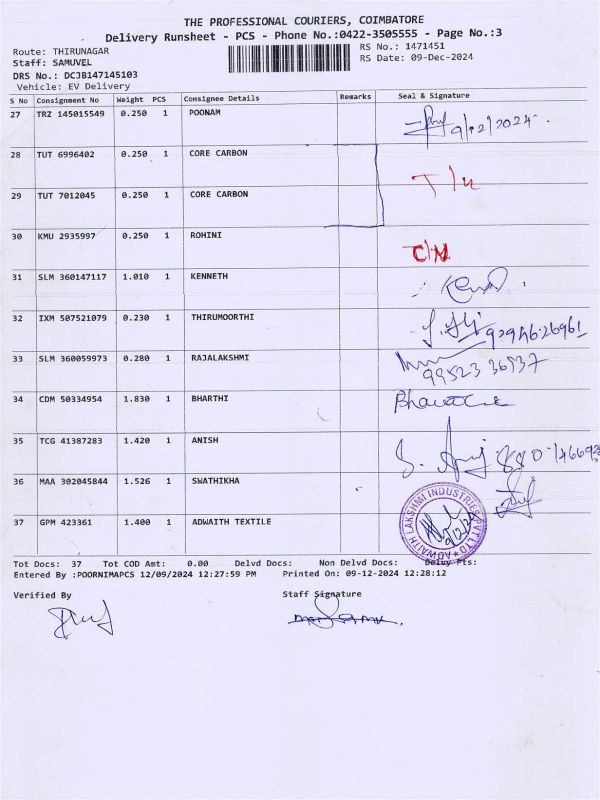 THE PROFESSIONAL COURIERS, COIMBATORE
Delivery Runsheet - PCS - Phone No.:0422-3505555 - Page No.:3
Route: THIRUNAGAR RS No.: 1471451
Staff: SAMUVEL RS Date: 09-Dec-2024
DRS No.: DCJB147145103
Vehicle: EV Delivery
S No Consignment No Weight PCS Consignee Details Remarks Seal & Signature
27 TRZ 145015549 0.250 1 POONAM 9/12/2024
28 TUT 6996402 0.250 1 CORE CARBON
29 TUT 7012045 0.250 1 CORE CARBON
30 KMU 2935997 0.250 1 ROHINI C/N
31 SLM 360147117 1.010 1 KENNETH
32 IXM 507521079 0.230 1 THIRUMOORTHI
33 SLM 360059973 0.280 1 RAJALAKSHMI 99523 36937
34 CDM 50334954 1.830 1 BHARTHI
35 TCG 41387283 1.420 1 ANISH
36 MAA 302045844 1.526 1 SWATHIKHA
37 GPM 423361 1.400 1 ADWAITH TEXTILE
ADWAITH LAKSHMI INDUSTRIES PVT LTD
Tot Docs: 37 Tot COD Amt: 0.00 Delvd Docs: Non Delvd Docs: Delvy Pts:
Entered By :POORNIMAPCS 12/09/2024 12:27:59 PM Printed On: 09-12-2024 12:28:12
Verified By Staff Signature